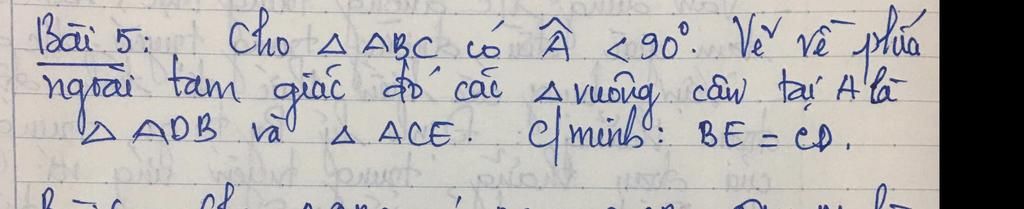 Bài 5: Cho △ ABC có Â < 90°. Vẽ về phía
ngoài tam giác đó các △ vuông cân tại A là
△ ADB và △ ACE. C/minh: BE = CD.